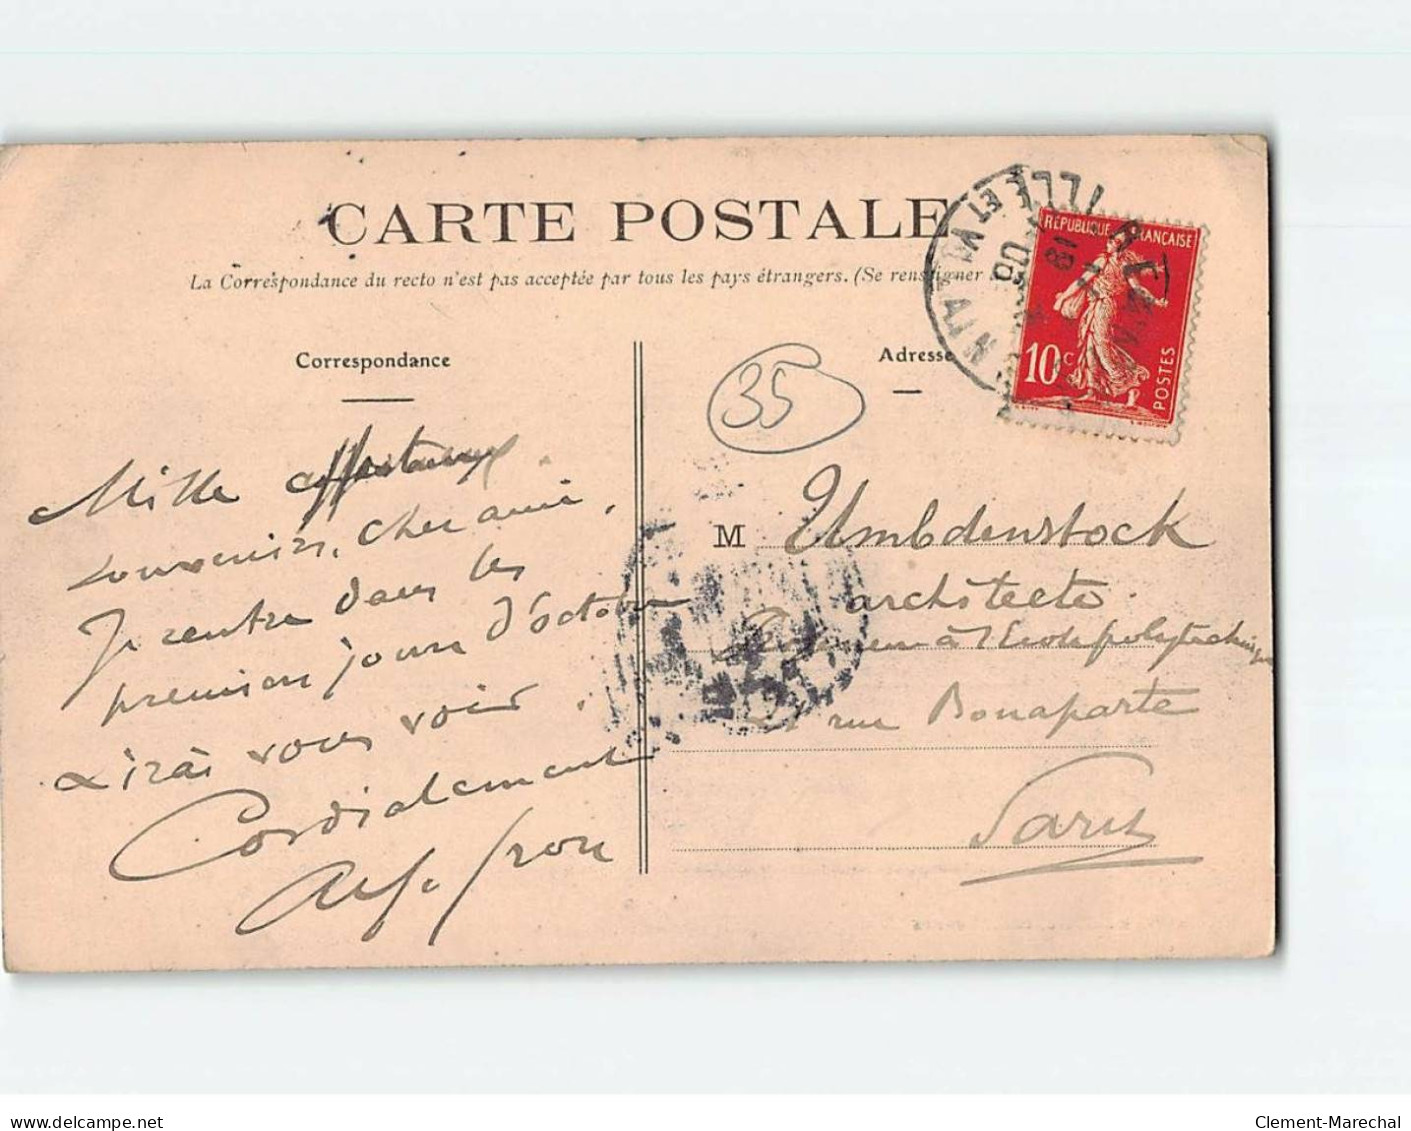 CARTE POSTALE
La Correspondance du recto n'est pas acceptée par tous les pays étrangers. (Se renseigner
Correspondance
Adresse
35
RÉPUBLIQUE FRANÇAISE
10c
POSTES
ILLE ET VILAINE
Mille affectueux
souvenirs, cher ami.
Je rentre dans les
premiers jours d'octobre
& irai vous voir.
Cordialement
M Umbdenstock
architecte
Professeur à l'Ecole polytechnique
rue Bonaparte
Paris
www.delcampe.net
Clement-Marechal